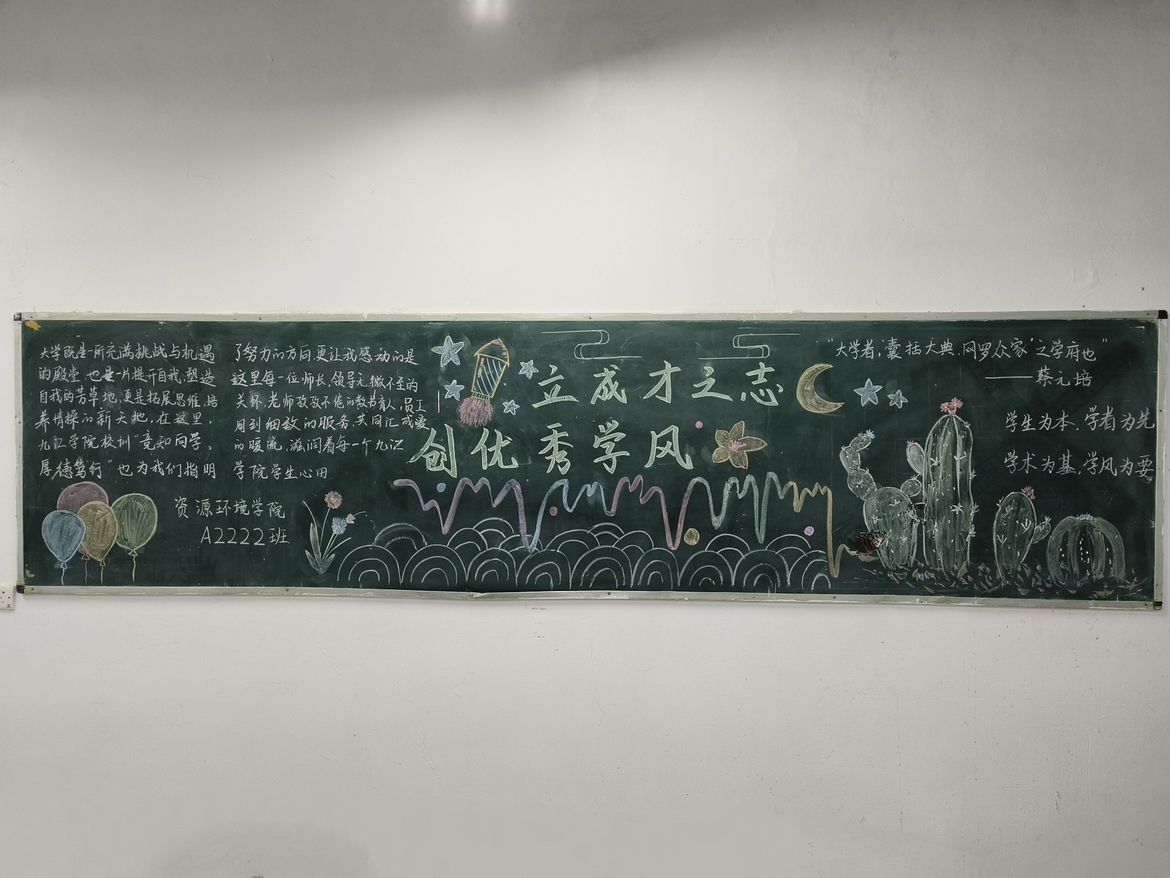 大学既是一所充满挑战与机遇
的殿堂.也是一片提升自我.塑造
自我的芳草地,更是拓展思维.培
养情操的新天地.在这里.
九江学院校训"竟知向学,
厚德笃行"也为我们指明
了努力的方向.更让我感动的是
这里每一位师长.领导无微不至的
关怀.老师孜孜不倦的教书育人.员工
周到细致的服务.共同汇成爱
的暖流.滋润着每一个九江
学院学生心田
资源环境学院
A2222班
立成才之志
创优秀学风
"大学者,囊括大典.网罗众家之学府也"
——蔡元培
学生为本.学者为先
学术为基.学风为要